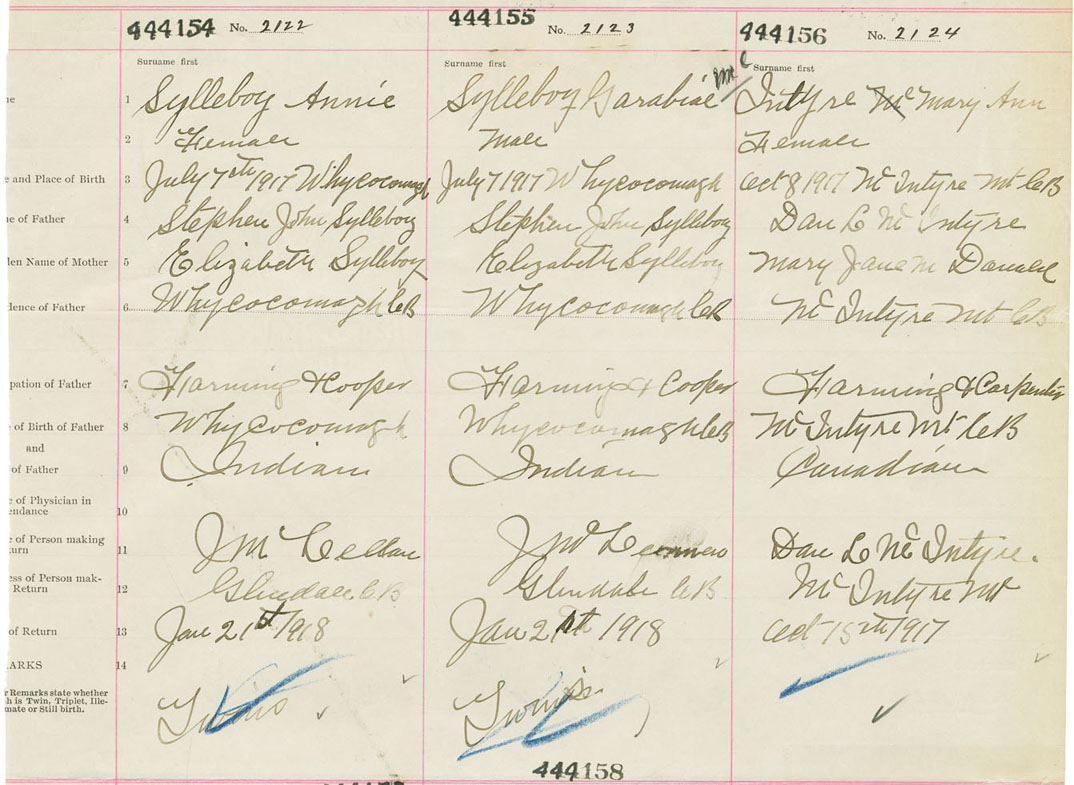 444154 No. 2122
Surname first
1 Sylleboy Annie
2 Female
3 July 7th 1917 Whycocomagh
4 Stephen John Sylleboy
5 Elizabeth Sylleboy
6 Whycocomagh CB
7 Farming & Cooper
8 Whycocomagh
9 Indian
10
11 J Mc Lellan
12 Glendale CB
13 Jan 21st 1918
14
Twins
444155 No. 2123
Surname first
Sylleboy Garabiel
Male
July 7 1917 Whycocomagh
Stephen John Sylleboy
Elizabeth Sylleboy
Whycocomagh CB
Farming & Cooper
Whycocomagh CB
Indian
J Mc
Glendale CB
Jan 1918
Twins
444158
444156 No. 2124
Surname first
Mc Intyre Mc Mary Ann
Female
Oct 8 1917 Mc Intyre Mt CB
Dan L Mc Intyre
Mary Jane Mc Donald
Mc Intyre Mt CB
Farming & Carpenter
Mc Intyre Mt CB
Canadian
Dan L Mc Intyre.
Mc Intyre Mt
Oct 15th 1917
me
e and Place of Birth
ne of Father
den Name of Mother
dence of Father
pation of Father
e of Birth of Father
and
of Father
e of Physician in
endance
e of Person making
turn
ess of Person mak-
Return
of Return
ARKS
r Remarks state whether
h is Twin, Triplet, Ille-
mate or Still birth.